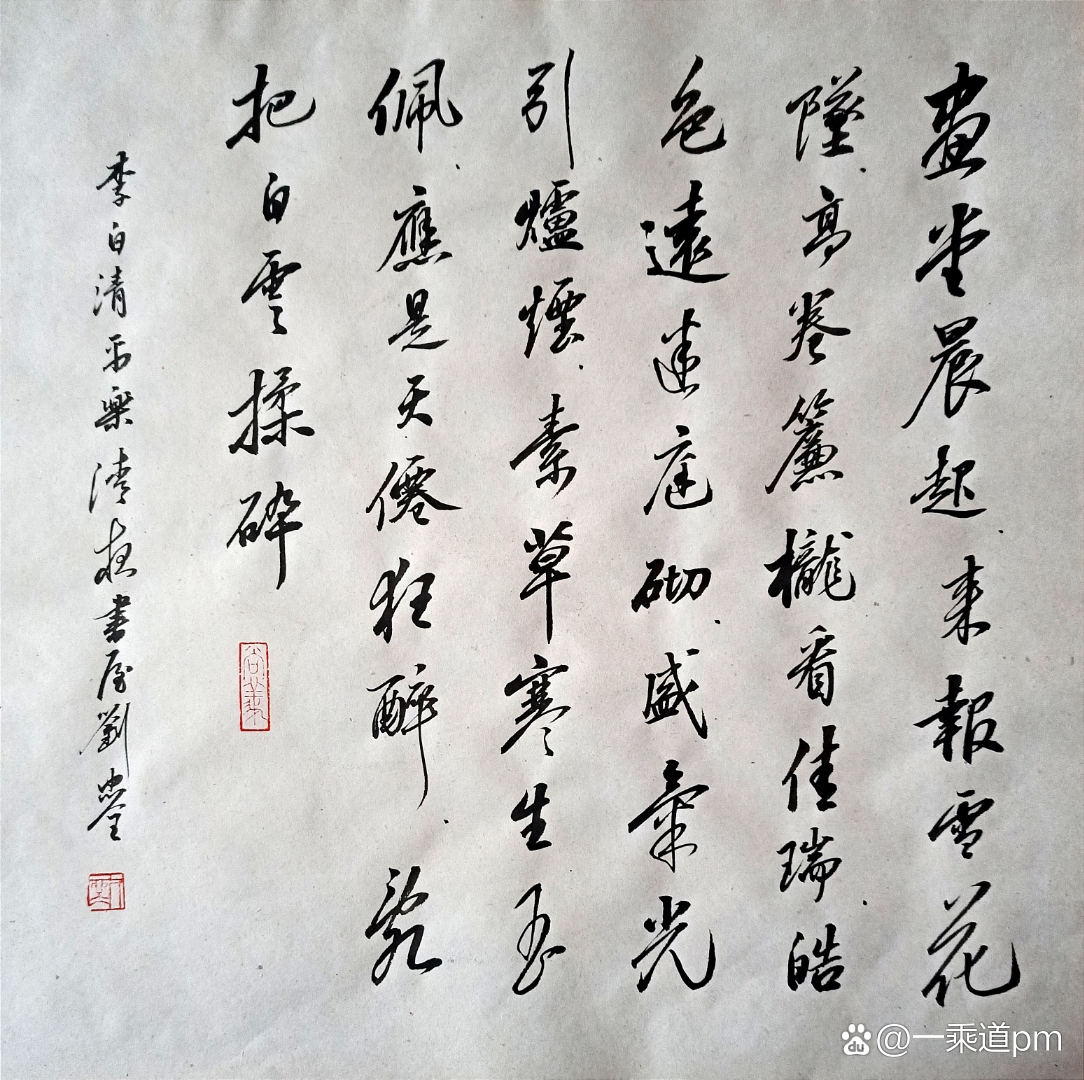 畫堂晨起来報雪花
墜高卷簾櫳看佳瑞皓
色遠迷庭砌盛氣光
引爐煙素草寒生玉
佩應是天僊狂醉亂
把白雲揉碎
李白清平樂清書屋劉
du @一乘道pm